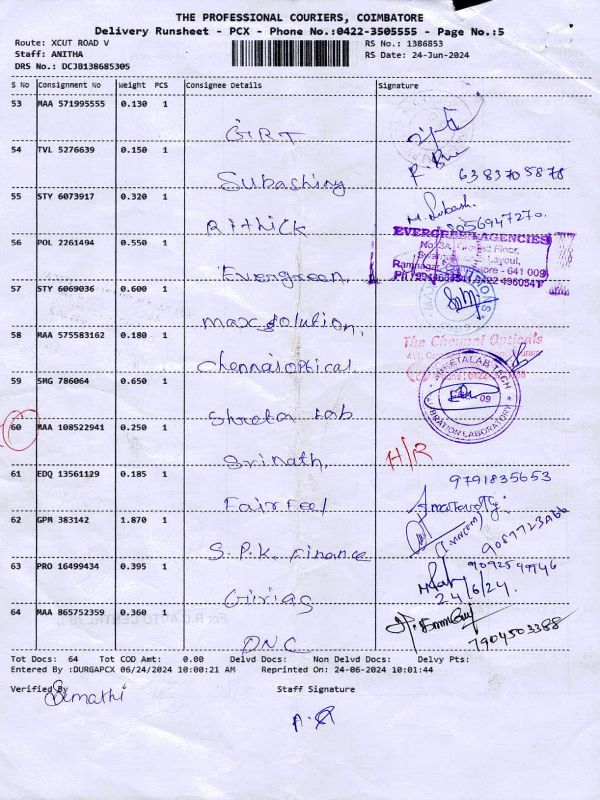 THE PROFESSIONAL COURIERS, COIMBATORE
Delivery Runsheet - PCX - Phone No.:0422-3505555 - Page No.:5
Route: XCUT ROAD V RS No.: 1386853
Staff: ANITHA RS Date: 24-Jun-2024
DRS No.: DCJB138685305
S No Consignment No Weight PCS Consignee Details Signature
53 MAA 571995555 0.130 1
GRT
54 TVL 5276639 0.150 1
R.
6383705878
Subashiny
55 STY 6073917 0.320 1
M. Subash
8056947270.
Rithick
56 POL 2261494 0.550 1
EVERGREEN AGENCIES
Floor,
Layout,
Ramnagar, - 641 009
Evergreen,
57 STY 6069036 0.600 1
max solution,
58 MAA 575583162 0.180 1
The Chennai Opticals
Chennai optical
59 SMG 786064 0.650 1
SHRETALAB TECH
09
CALIBRATION LABORATORY
Shreta Lab
60 MAA 108522941 0.250 1
H/R
Srinath,
61 EDQ 13561129 0.185 1
9791835653
Fairfeel
62 GPR 383142 1.870 1
S.P.K. Finance
63 PRO 16499434 0.395 1
24/6/24.
Girias
64 MAA 865752359 0.360 1
7904503388
DNC
Tot Docs: 64 Tot COD Amt: 0.00 Delvd Docs: Non Delvd Docs: Delvy Pts:
Entered By :DURGAPCX 06/24/2024 10:00:21 AM Reprinted On: 24-06-2024 10:01:44
Verified By Staff Signature
Sumathi